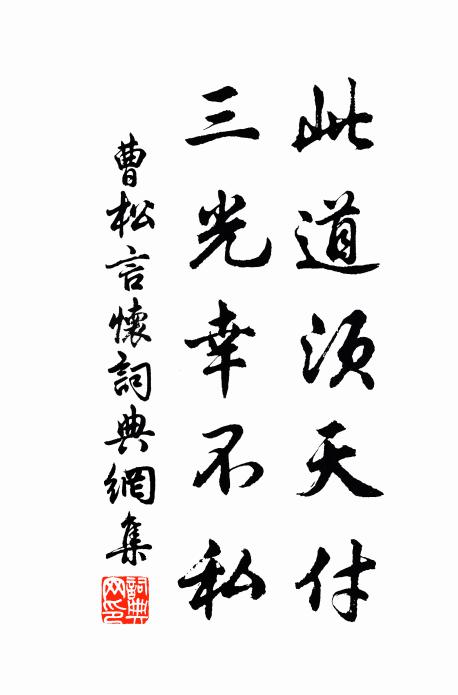 此道须天付
三光幸不私
曹松言懷詞典網集
詞典網印